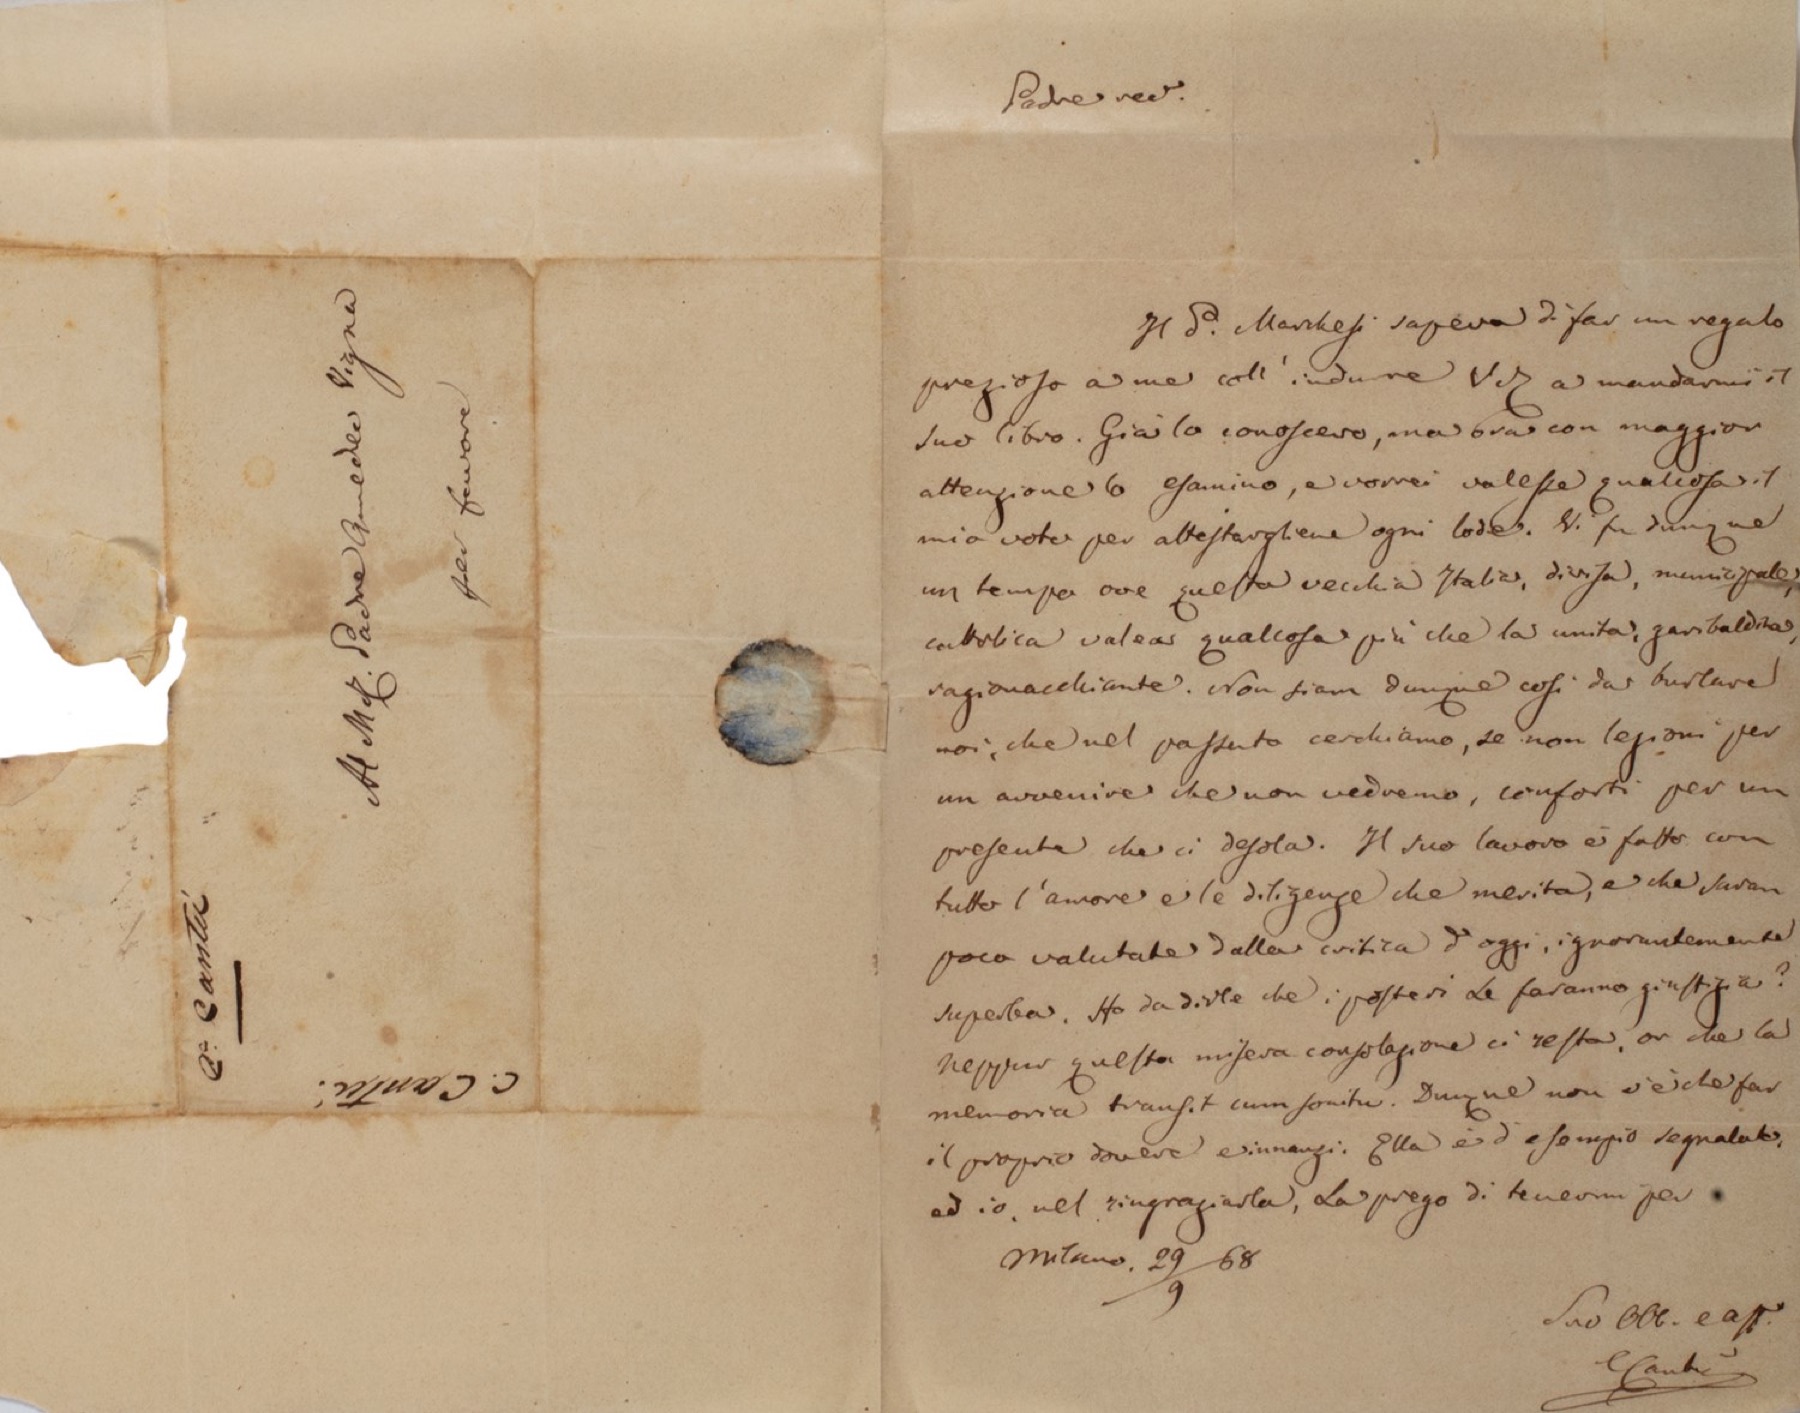 Al M. R. Padre Amedeo Vigna
per favore
Ce. Cantù
C. Cantù.
Padre rev.
Il P. Marchesi sapeva di far un regalo
prezioso a me coll'indurre V S a mandarmi il
suo libro. Già lo conoscevo, ma ora con maggior
attenzione lo esamino, e vorrei valesse qualcosa il
mio voto per attestargliene ogni lode. Vi fu dunque
un tempo ove questa vecchia Italia, divisa, municipale,
cattolica valea qualcosa più che la unita, garibaldina,
ragionacchiante. Non siam dunque così da burlare
noi, che nel passato cerchiamo, se non lezioni per
un avvenire che non vedremo, conforti per un
presente che ci desola. Il suo lavoro è fatto con
tutto l'amore e le diligenze che merita, e che saran
poco valutate dalla critica d'oggi, ignorantemente
superba. Ho da dirle che i posteri Le faranno giustizia?
Neppur questa misera consolazione ci resta, or che la
memoria transit cum sonitu. Dunque non v'è che far
il proprio dovere e innanzi. Ella è d'esempio segnalato,
ed io, nel ringraziarla, La prego di tenermi per
Milano, 29/9 68
Suo Obb. e aff.
CCantù